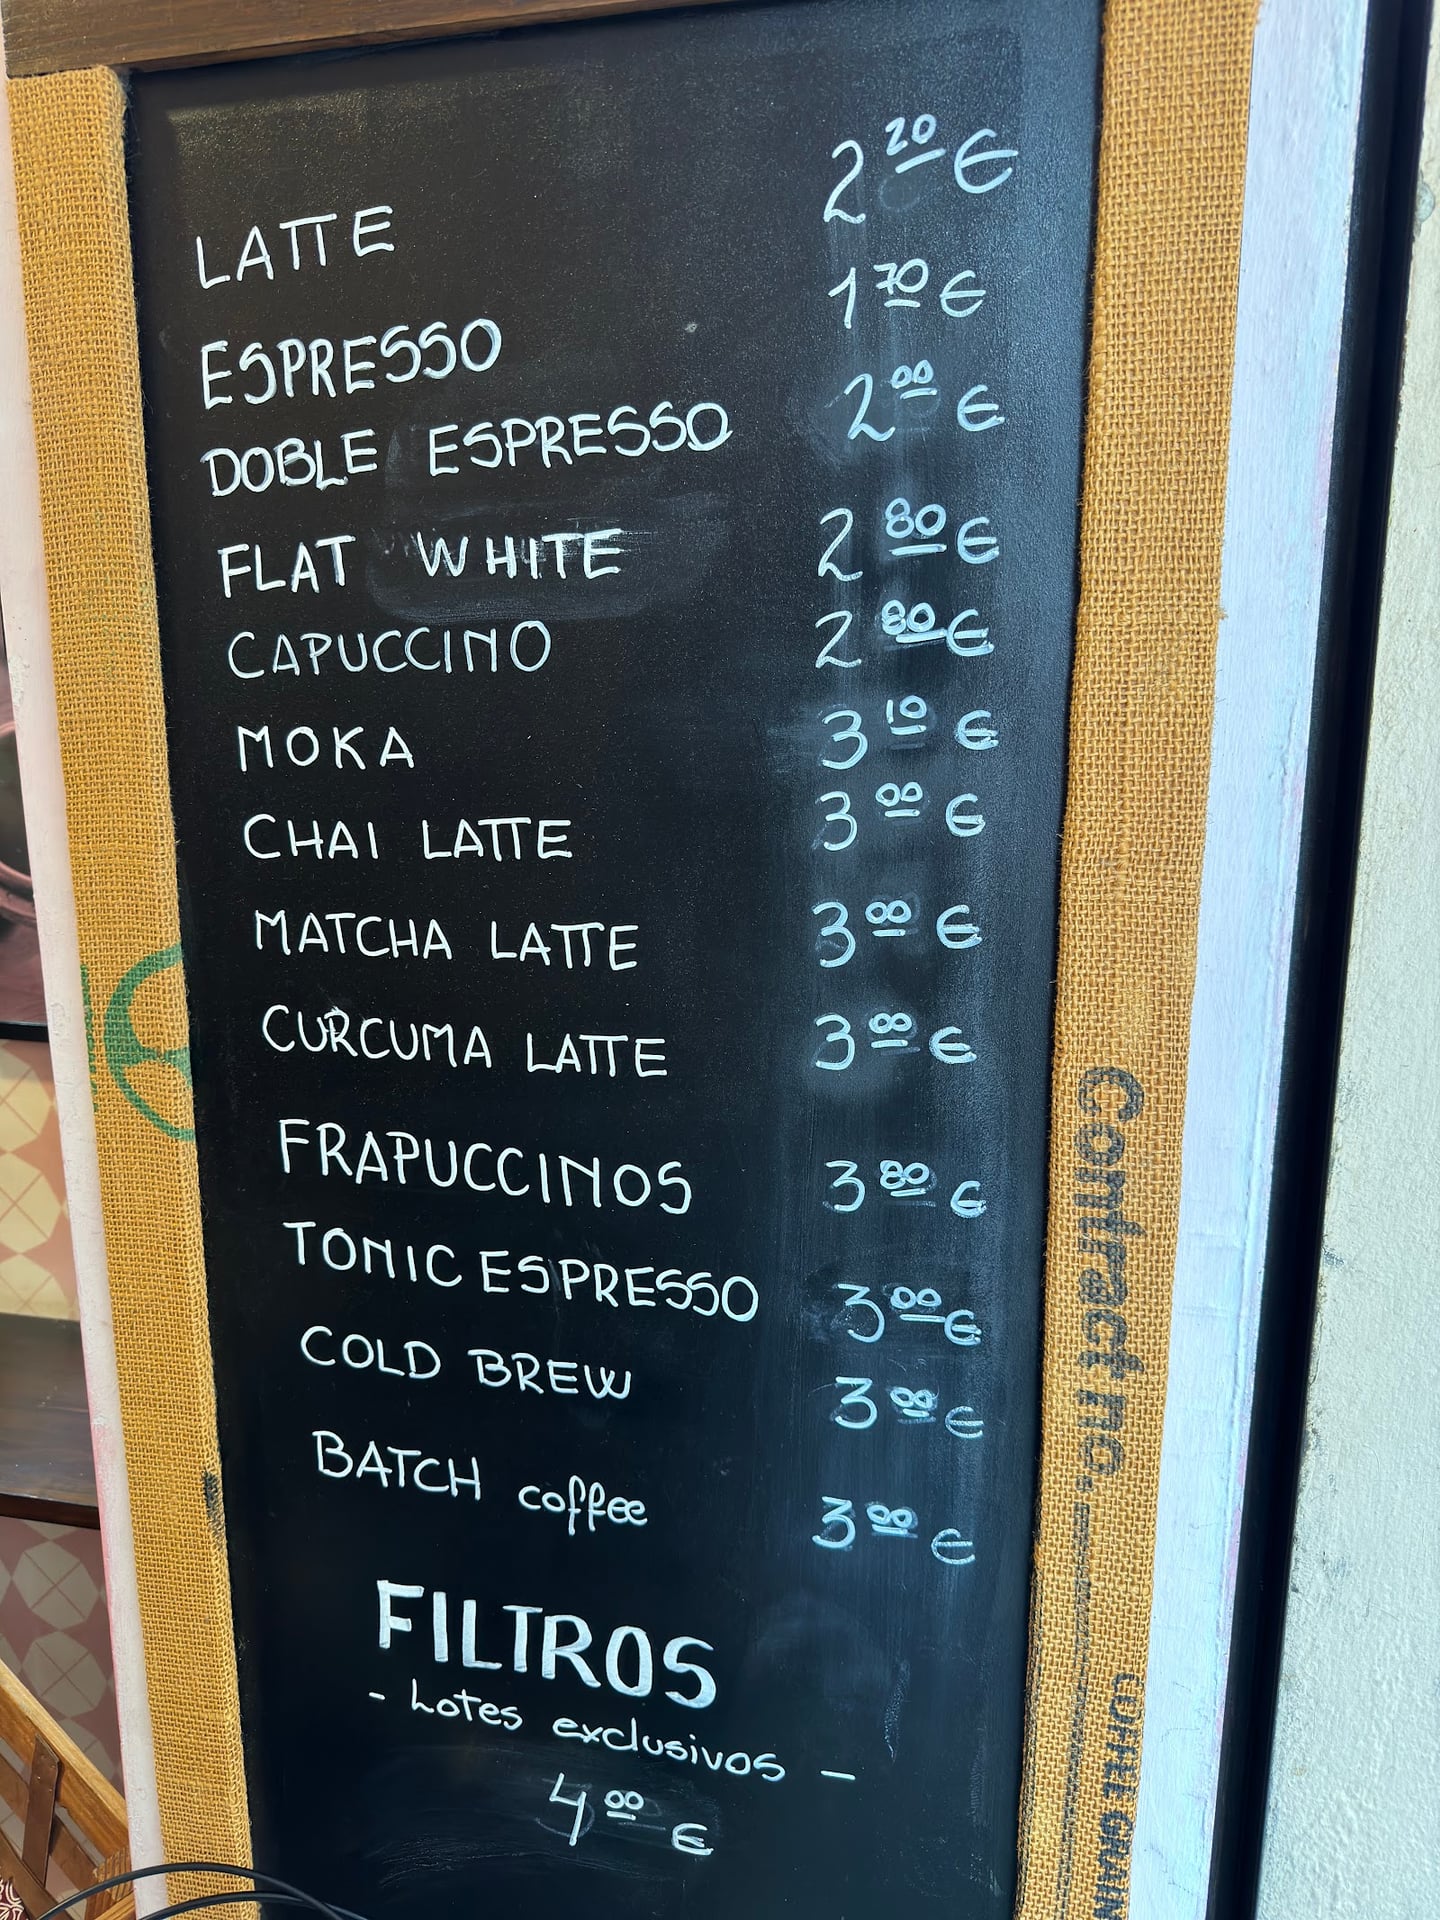 LATTE 2 20 €
ESPRESSO 1 70 €
DOBLE ESPRESSO 2 00 €
FLAT WHITE 2 80 €
CAPUCCINO 2 80 €
MOKA 3 10 €
CHAI LATTE 3 00 €
MATCHA LATTE 3 00 €
CURCUMA LATTE 3 00 €
FRAPUCCINOS 3 80 €
TONIC ESPRESSO 3 00 €
COLD BREW 3 00 €
BATCH coffee 3 00 €
FILTROS
- Lotes exclusivos -
4 00 €
Contract no.
COFFEE GRAIN